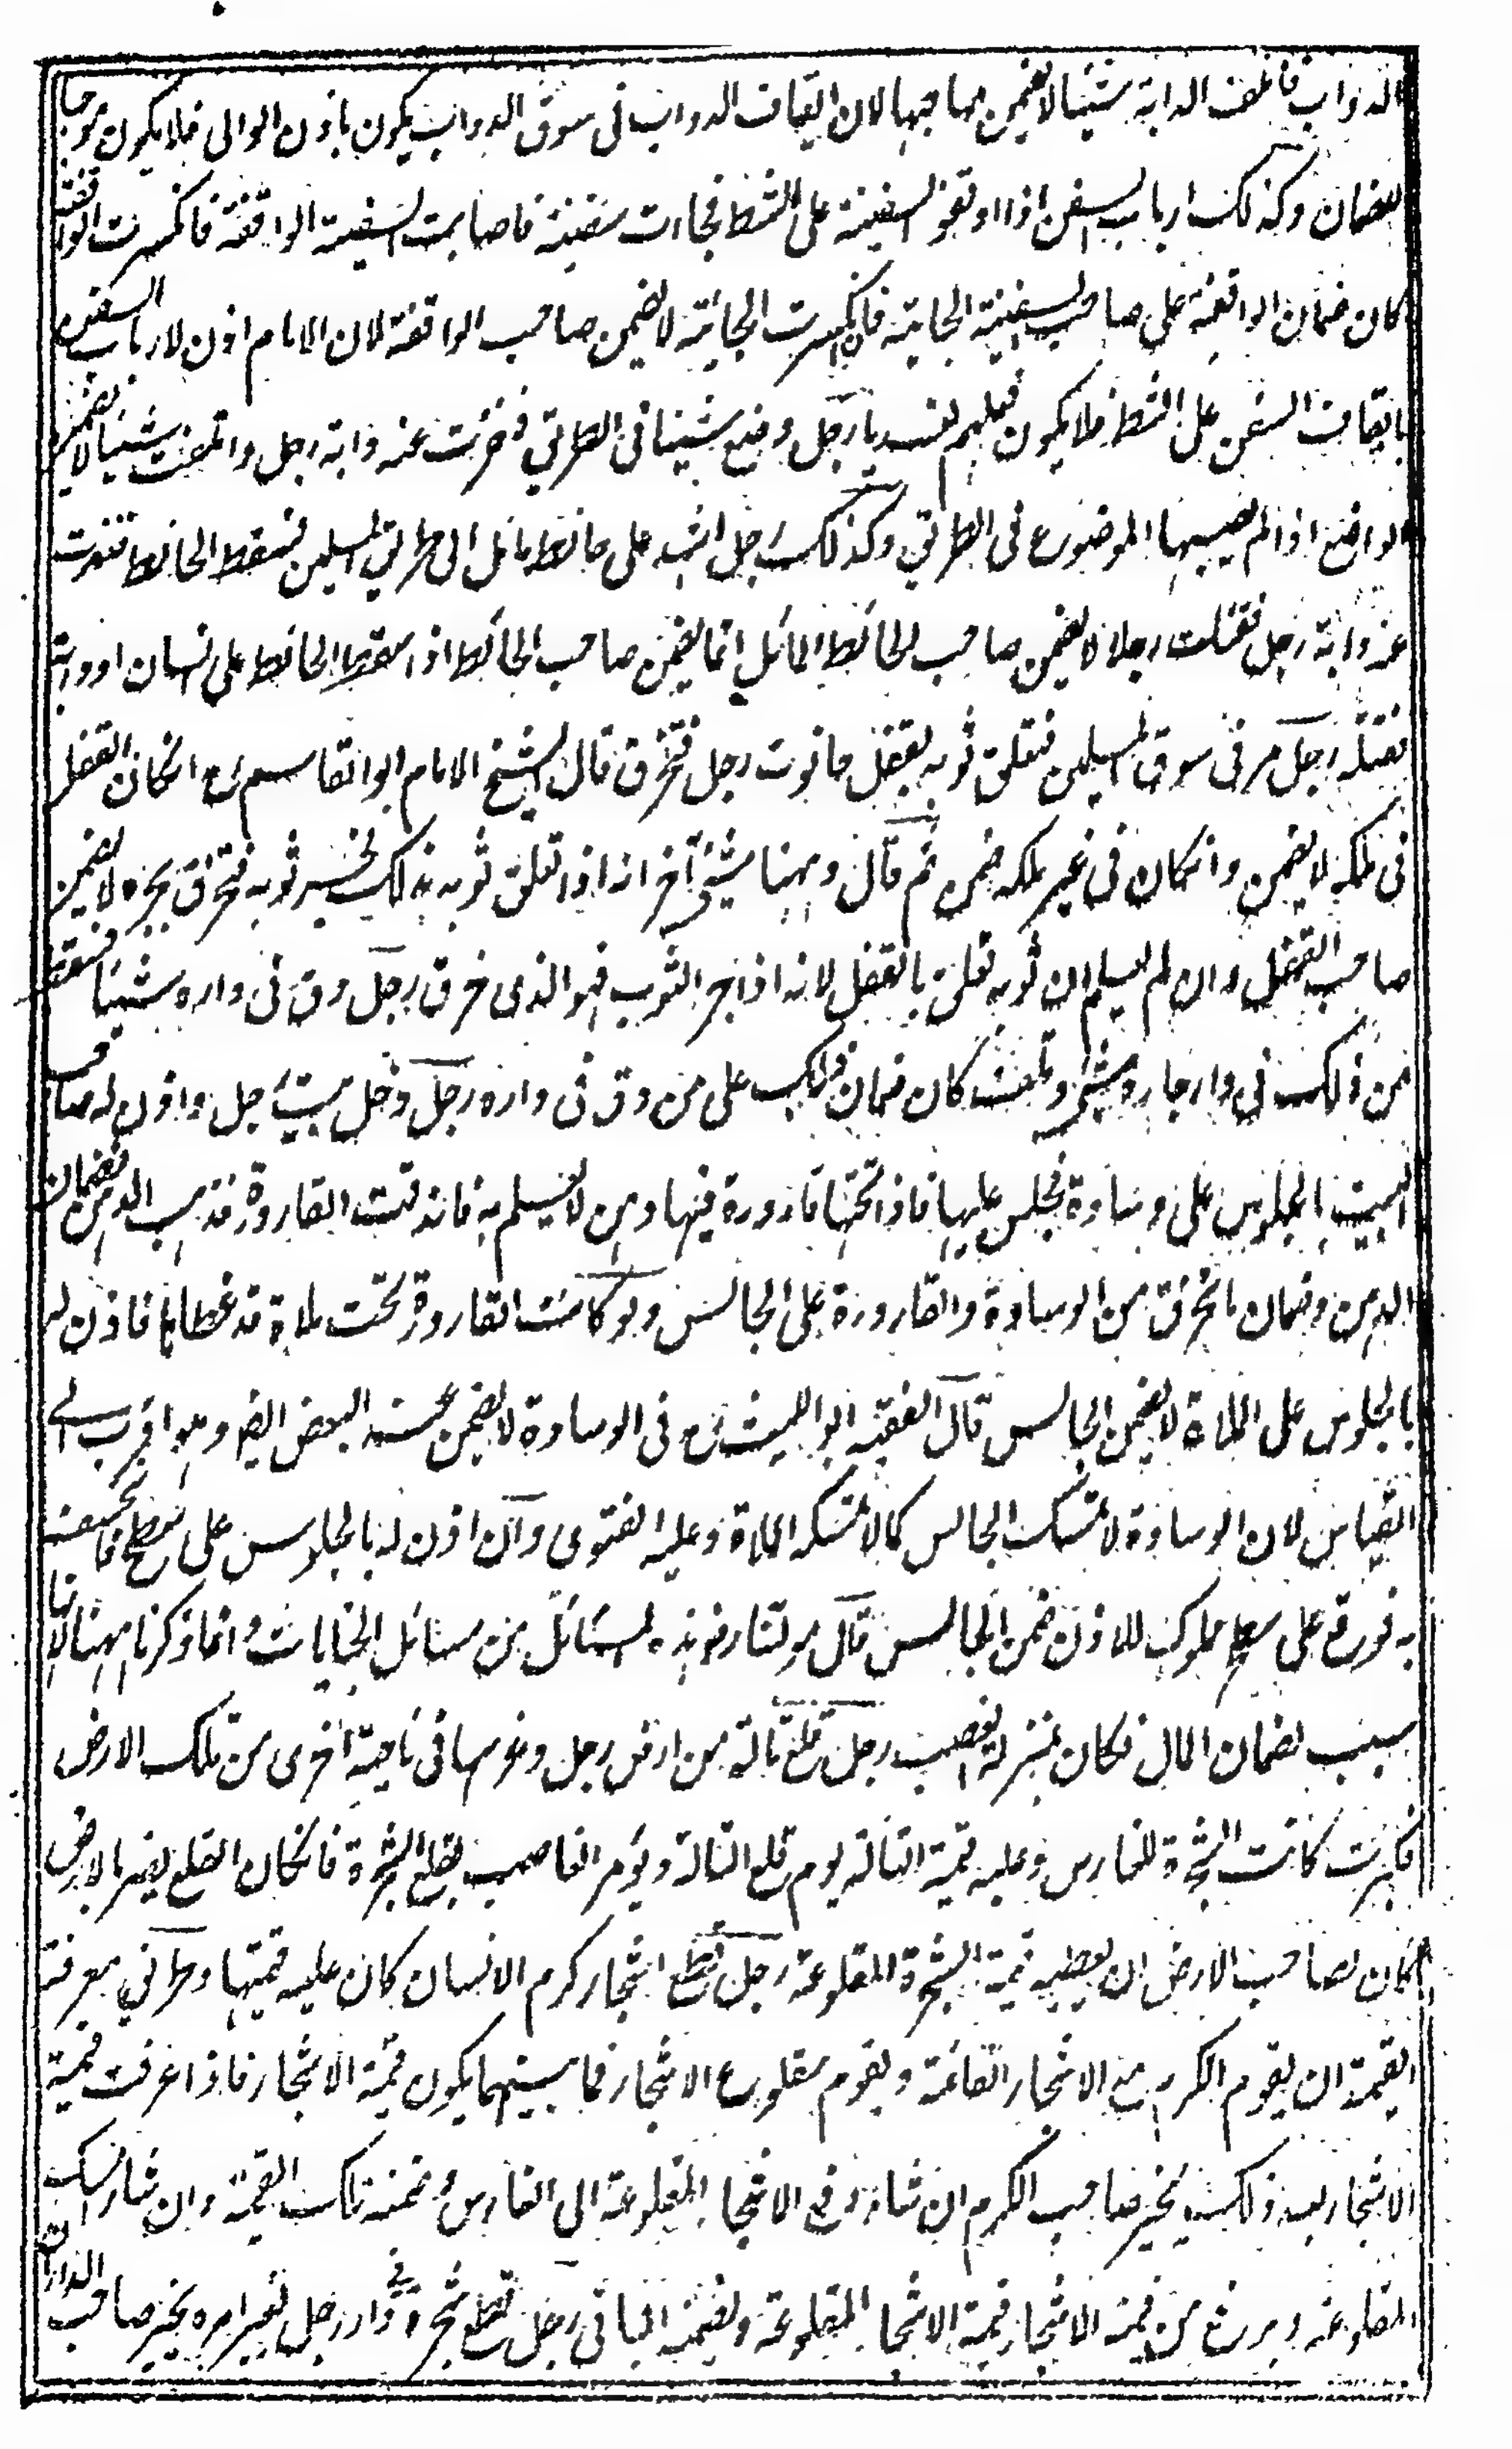 الدواب فاتلف الدابة شيئا لا يضمن صاحبها لان ايقاف الدواب فى سوق الدواب يكون باذن الوالى فلا يكون موجبا
للضمان وكذلك ارباب السفن اذا اوقفوا السفينة على الشط فجاءت سفينة فاصابت السفينة الواقفة فانكسرت الواقفة
كان ضمان الواقفة على صاحب السفينة الجائية فان انكسرت الجائية لا يضمن صاحب الواقفة لان الامام اذن لارباب السفن
بايقاف السفن على الشط فلا يكون فعلهم تعديا رجل وضع شيئا فى الطريق فنفرت عنه دابة رجل واتلفت شيئا لا يضمن
الواضع اذا لم يصبها الموضوع فى الطريق وكذلك رجل اشهد على حائط مائل الى طريق المسلمين فسقط الحائط فنفرت
عنه دابة رجل فقتلت رجلا لا يضمن صاحب الحائط المائل انما يضمن صاحب الحائط اذا سقط الحائط على انسان او دابة
فقتله رجل مر فى سوق المسلمين فتعلق ثوبه بقفل حانوت رجل فتخرق قال الشيخ الامام ابو القاسم رح انكان القفل
فى ملكه لا يضمن وانكان فى غير ملكه ضمن ثم قال وههنا شئ آخر انه اذا تعلق ثوبه بذلك فجر ثوبه فتخرق بجره لا يضمن
صاحب القفل وان لم يعلم ان ثوبه تعلق بالقفل لانه اذا جر الثوب فهو الذى خرق رجل دق فى داره شيئا فسقط
من ذلك فى دار جاره شئ وتلف كان ضمان ذلك على من دق فى داره رجل دخل بيت رجل واذن له صاحب
البيت بالجلوس على وسادة فجلس عليها فاذا تحتها قارورة فيها دهن لا يعلم به فاندقت القارورة فذهب الدهن فضمان
الدهن وضمان ما تخرق من الوسادة والقارورة على الجالس ولو كانت القارورة تحت ملاءة قد غطاها فاذن له
بالجلوس على الملاءة لا يضمن الجالس قال الفقيه ابو الليث رح فى الوسادة لا يضمن عند البعض ايضا وهو اقرب الى
القياس لان الوسادة لا تمسك الجالس كما لا تمسكه الملاءة وعليه الفتوى وان اذن له بالجلوس على سطح فانخسف
به فوقع على مملوك للآذن ضمن الجالس قال مولنا رض هذه المسائل من مسائل الجنايات وانما ذكرناها ههنا لانها
سبب لضمان المال فكان بمنزلة الغصب رجل قلع تالة من ارض رجل وغرسها فى ناحية اخرى من تلك الارض
فكبرت كانت الشجرة للغارس وعليه قيمة التالة يوم قلع التالة ويؤمر الغاصب بقلع الشجرة فانكان القلع يضر بالارض
كان لصاحب الارض ان يعطيه قيمة الشجرة المقلوعة رجل قطع اشجار كرم الانسان كان عليه قيمتها وطريق معرفة
القيمة ان يقوم الكرم مع الاشجار القائمة ويقوم مقلوع الاشجار فما بينهما يكون قيمة الاشجار فاذا عرفت قيمة
الاشجار بعد ذلك يخير صاحب الكرم ان شاء دفع الاشجار المقلوعة الى الغارس وضمنه تلك القيمة وان شاء امسك
المقلوعة ويرفع من قيمة الاشجار قيمة الاشجار المقلوعة ويضمنه الباقى رجل قطع شجرة فى دار رجل بغير امره يخير صاحب الدار ان